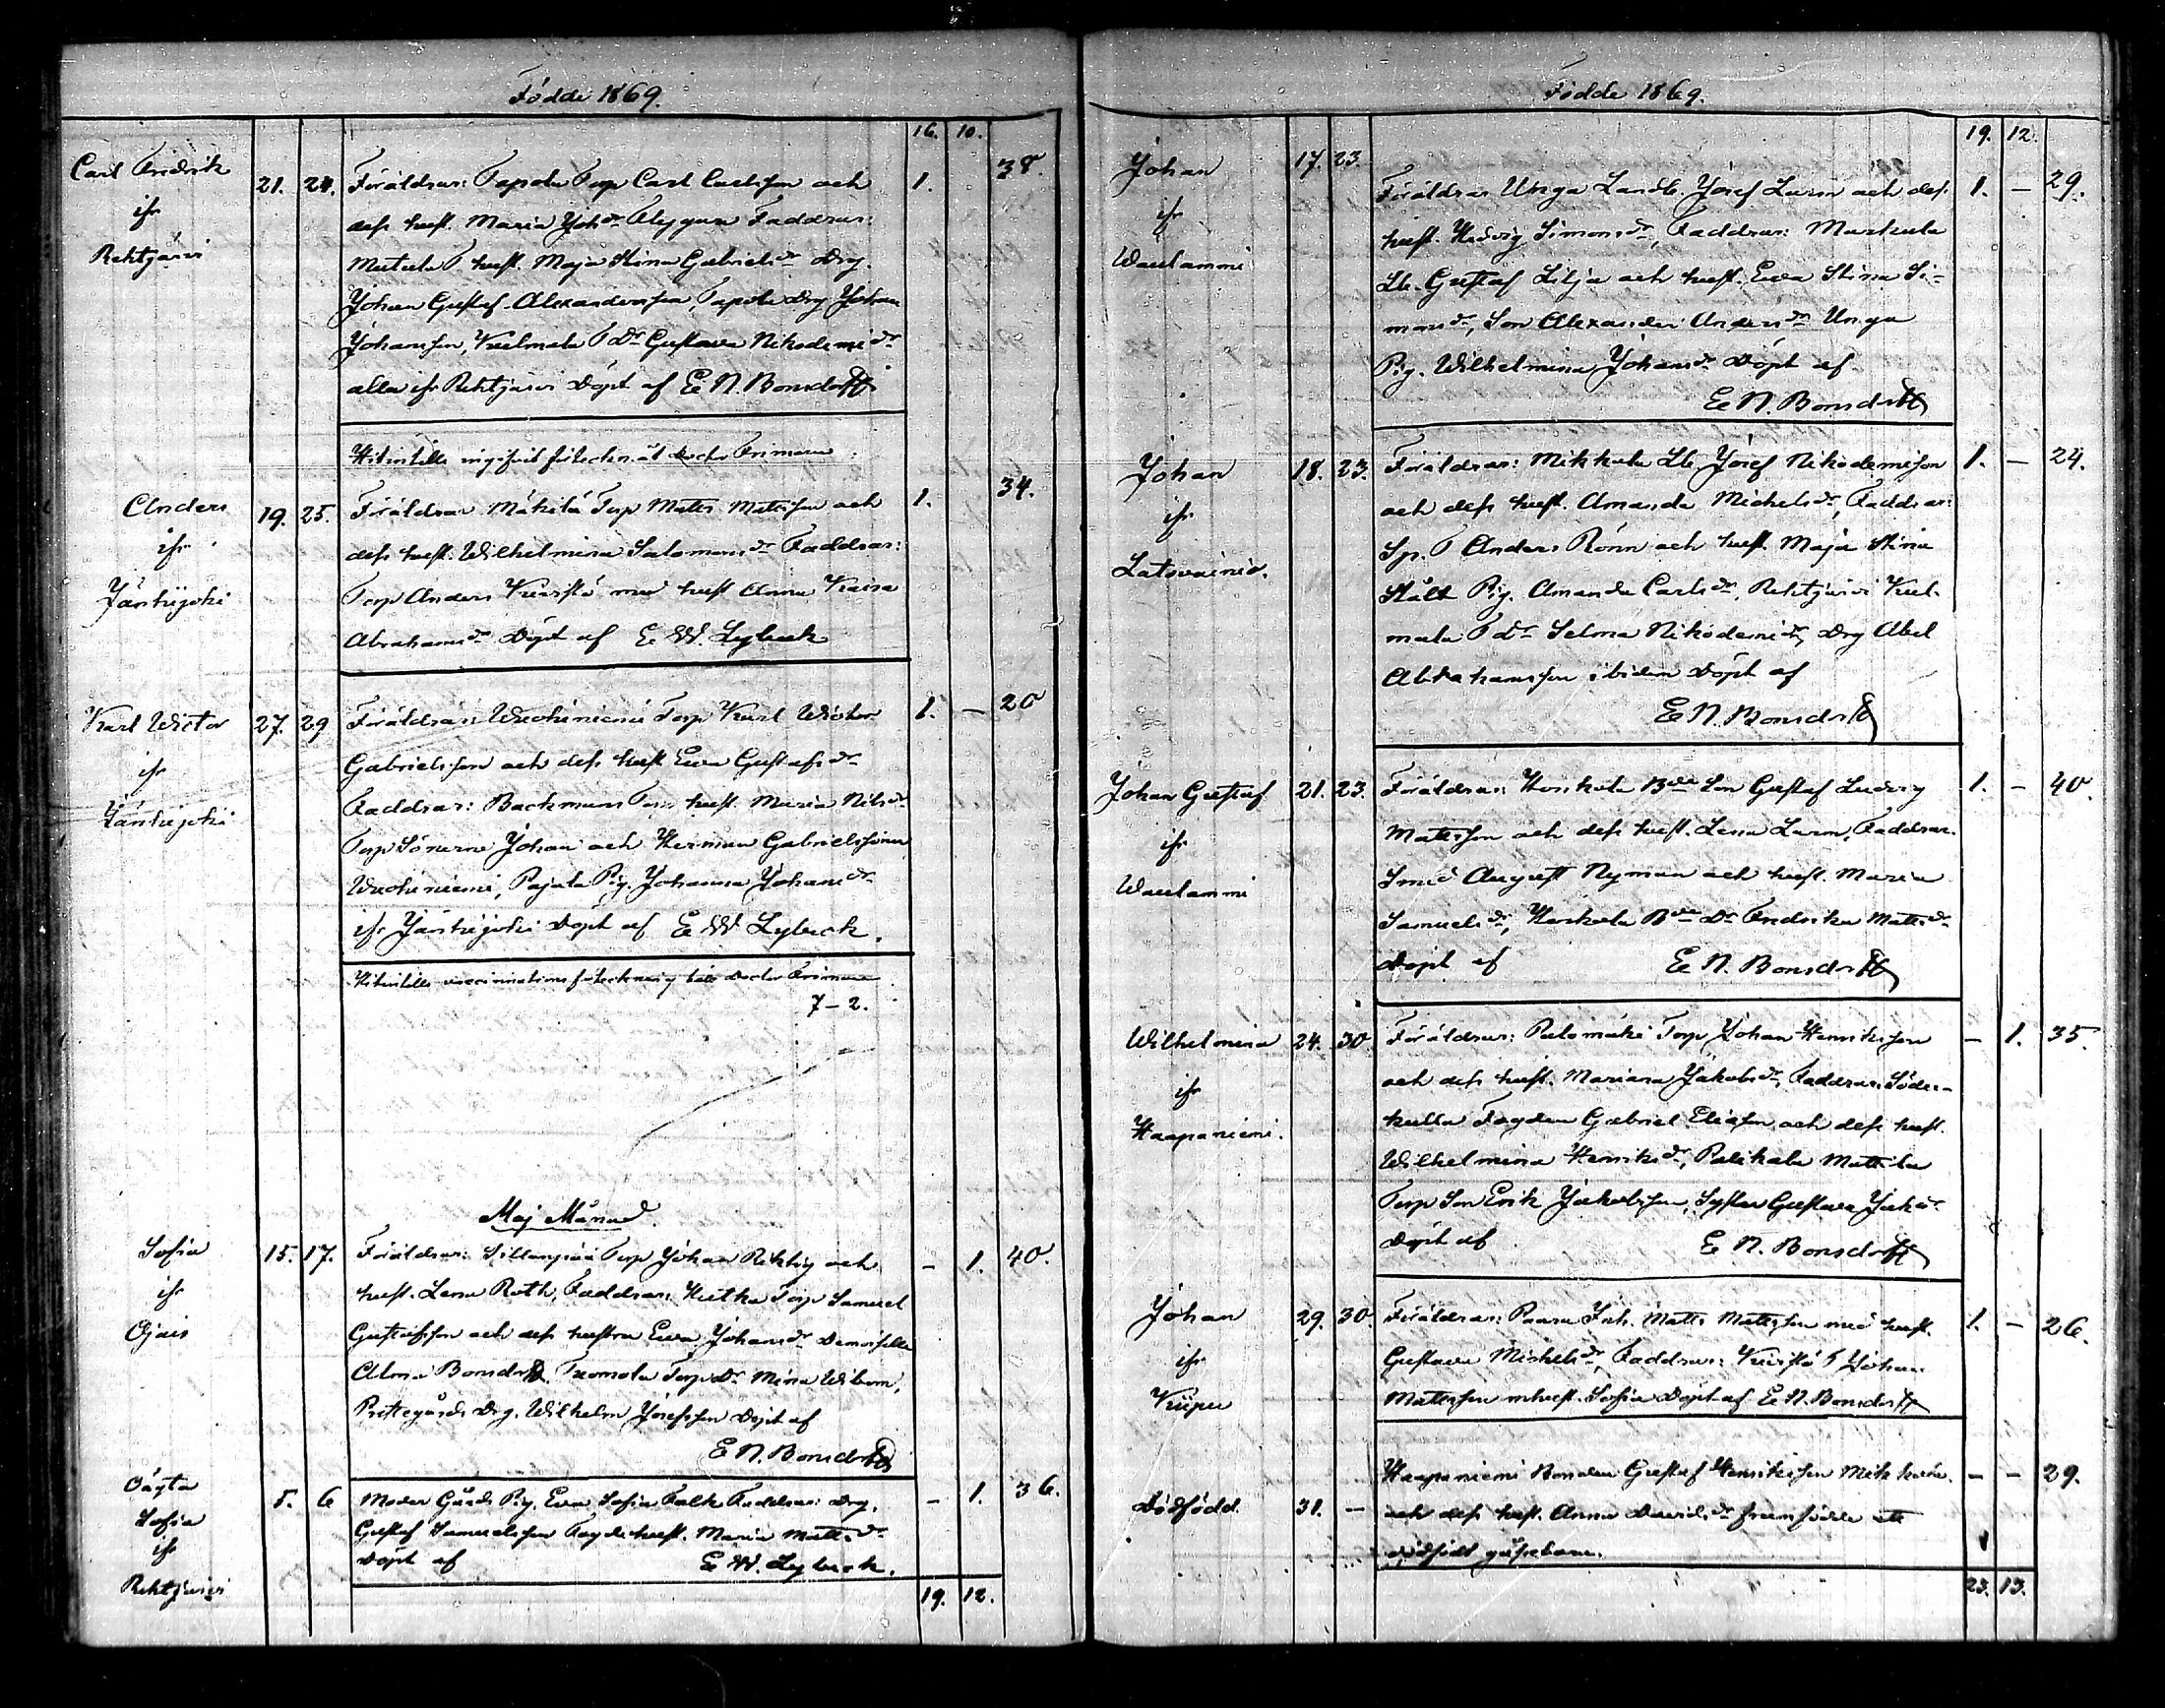 Födde 1869.
16. 10.
Carl Fredrik
ifr
Rehtijärvi
21. 24. Föräldrar: Tapola Torp Carl Carlsson och 1. 38.
dess hust. Maria Joh.dr Flyggare Faddrar:
Mutula T hust. Maja Stina Gabrielsdr Drg.
Johan Gustaf Alexandersson, Tapola Drg Johan
Johansson, Kulmala T dr Gustava Nikodemidr
alla ifr Rehtijärvi Döpt af E. N. Bonsdorff
Hitintills förteckn. åt doctor Frimann
Anders
ifr
Jänhijoki
19. 25. Föräldrar Mäkilä Torp Matts Mattsson och 1. 34.
dess hust. Wilhelmina Salomonsdr Faddrar:
Torp Anders Kuisto med hust Anna Kaisa
Abrahamsdr Döpt af E. W. Lybeck
Karl Wictor
ifr
Jänhijoki
27. 29 Föräldrar: Wuohiniemi Torp Karl Wictor 1. – 20
Gabrielsson och dess hust Ewa Gustafsdr
Faddrar: Backmans Torp hust. Maria Nilsdr
Torp Sönerne Johan och Herman Gabrielssöner
Wuohiniemi, Pajala Pig. Johanna Johansdr
ifr Jänhijoki Döpt af E W Lybeck.
Hitintills vaccinations förteckning till Doctor Frimann
7 – 2.
Maj Månad.
Sofia
ifr
Ojais
15. 17. Föräldrar: Sillanpää Torp Johan Rehtig och – 1. 40.
hust. Lena Roth, Faddrar: Hutka Torp Samuel
Gustafsson och dess hustru Ewa Johansdr Demoiselle
Alma Bonsdorff, Tuomola Torp Dr Mina Wibom,
Prestegårds Drg. Wilhelm Josefsson Döpt af
E. N. Bonsdorff
Oägta
Sofia
ifr
Rehtijärvi
5. 6 Moder Gårds Pig. Eva Sofia Falk Faddrar: Drg. – 1. 36.
Gustaf Samuelsson Fogdehust. Maria Mattsdr
Döpt af E. W. Lybeck.
19. 12.
Födde 1869.
19. 12.
Johan
ifr
Waulammi
17. 23. Föräldrar Unga Landb. Josef Lurm och dess 1. – 29.
hust. Hedvig Simonsdr, Faddrar: Markula
Lb. Gustaf Lilja och hust. Ewa Stina Si-
monsdr, Son Alexander Andersson Unga
Pig. Wilhelmina Johansdr Döpt af
E. N. Bonsdorff
Johan
ifr
Latovainio.
18. 23. Föräldrar: Mikkula Lb. Josef Nikodemisson 1. – 24.
och dess hust. Amanda Michelsdr, Faddrar:
Sp. T Anders Rönn och hust. Maja Stina
Stålt Pig. Amanda Carlsdr, Rehtijärvi Kul-
mala T dr Selma Nikodemidr, Drg Abel
Abrahamsson ibidem Döpt af
E. N. Bonsdorff
Johan Gustaf
ifr
Waulammi
21. 23. Föräldrar: Horkala Bde Son Gustaf Ludvig 1. – 40.
Mattsson och dess hust. Lena Lurm, Faddrar.
Smed August Nyman och hust. Maria
Samuelsdr, Horkala Bde Dr Fredrika Mattsdr
Döpt af E. N. Bonsdorff
Wilhelmina
ifr
Haapaniemi.
24. 30 Föräldrar: Palomäki Torp Johan Henriksson – 1. 35.
och dess hust. Mariana Jakobsdr, Faddrar: Söder-
kulla Fogden Gabriel Eliasson och dess hust.
Wilhelmina Henriksdr, Palikala Mattila
Torp Son Erik Jakobsson, Syster Gustava Jakodr
Döpt af E. N. Bonsdorff
Johan
ifr
Kuipu
29. 30 Föräldrar: Paavu Inh. Matts Mattsson med hust. 1. – 26.
Gustava Michelsdr, Faddrar: Kuisto T Johan
Mattsson m hust. Sofia Döpt af E. N. Bonsdorff
Dödfödd. 31. –
Haapaniemi Bonden Gustaf Henriksson Mikkola – – 29.
och dess hust. Anna Davidsdr framfödde ett
dödfödt gossebarn.
23. 13.